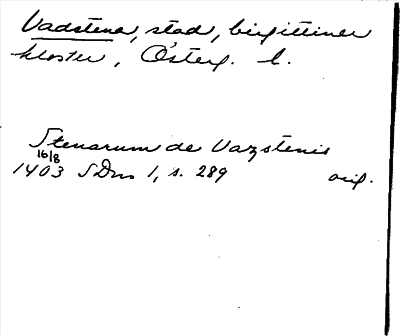 Vadstena, stad, birgittiner
kloster, Österg. l.
Stenarum de Vazstenis
16/8
1403 SDns 1, s. 289 orig.